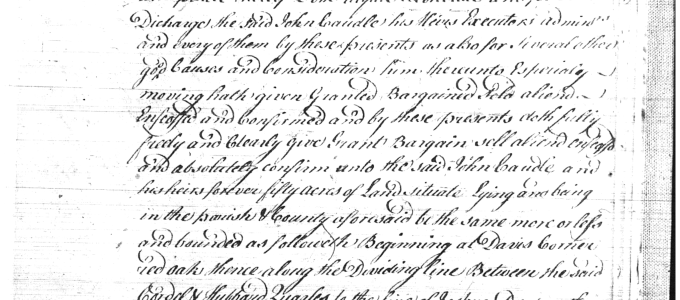 Discharge the said John Caudle his Heirs Executors admin.rs
and every of them by these presents as also for Several other
good Causes and Consideration him thereunto Especialy
moving hath given Granted Bargained Sold aliend
Enfeoffed and confirmed and by these presents doth fully
freely and Clearly give Grant Bargain sell aliend enfeoff
and absolutely confirm unto the said John Caudle and
his heirs forever fifty acres of Land situate Lying and being
in the parish & County aforesaid be the same more or less
and bounded as followeth Beginning at Davis Corner
red oak thence along the Dividing line Between the said
& Hubbard Quarles to the line of